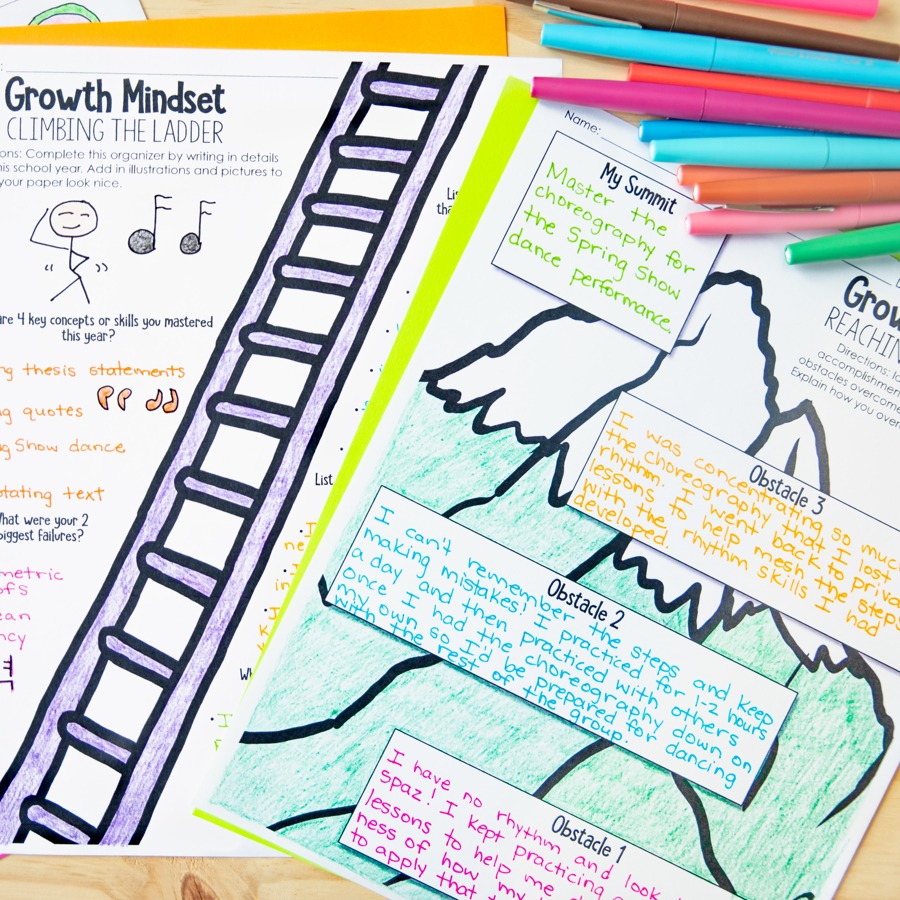 Growth Mindset
CLIMBING THE LADDER
ons: Complete this organizer by writing in details
his school year. Add in illustrations and pictures to
your paper look nice.
are 4 key concepts or skills you mastered
this year?
ng thesis statements
ng quotes
ng Show dance
otating text
What were your 2
biggest failures?
metric
ofs
ean
ncy
Li
tha
List
Wh
Name:
My Summit
Master the
choreography for
the Spring Show
dance performance.
Grow
REACHIN
Directions: Id
accomplishmen
obstacles overcome
Explain how you over
Obstacle 3
I was concentrating so much
the choreography that I lost
rhythm. I went back to priva
lessons to help mesh the steps
with the rhythm skills I had
developed.
Obstacle 2
I can't remember the steps and keep
making mistakes! I practiced for 1-2 hours
a day and then practiced with others
once I had the choreography down on
my own so I'd be prepared for dancing
with the rest of the group.
Obstacle 1
I have no rhythm and look
spaz! I kept practicing
lessons to help me
ness of how my
to apply that